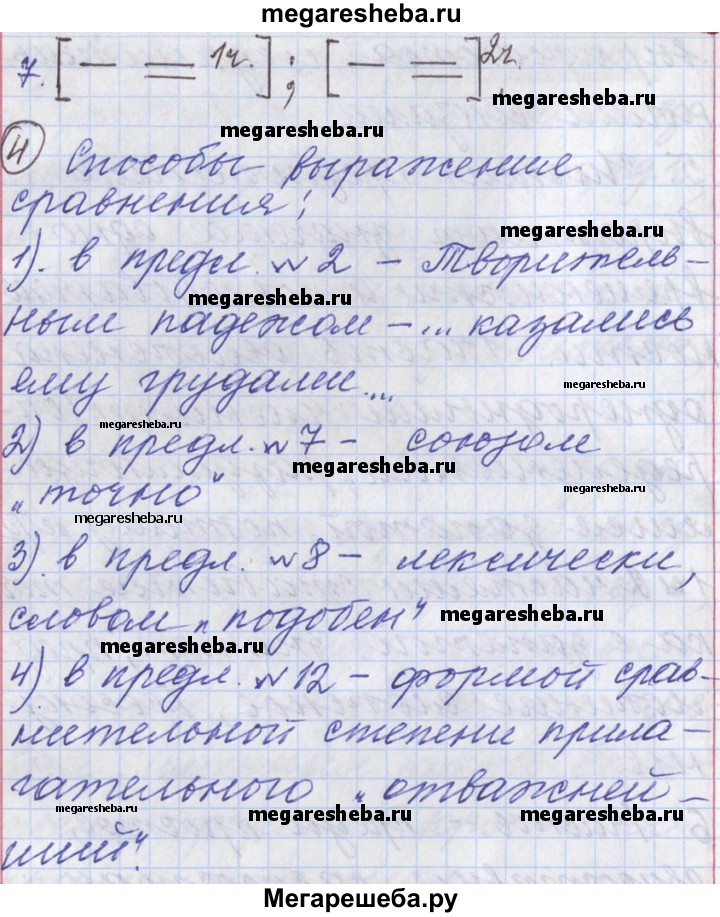 megaresheba.ru
7. [— = 1г.]; [— =] 2г.
megaresheba.ru
megaresheba.ru
4 Способы выражение
сравнения:
megaresheba.ru
1). в предл. №2 – Творитель-
megaresheba.ru
ным падежом – ... казались
ему грудами...
megaresheba.ru
megaresheba.ru
2) в предл. №7 – союзом
megaresheba.ru
„точно“
megaresheba.ru
megaresheba.ru
3) в предл. №8 – лексически,
словом „подобен“
megaresheba.ru
megaresheba.ru
4) в предл. №12 – формой срав-
нительной степени прила-
гательного „отважней-
megaresheba.ru
megaresheba.ru
megaresheba.ru
ший“.
Мегарешеба.ру